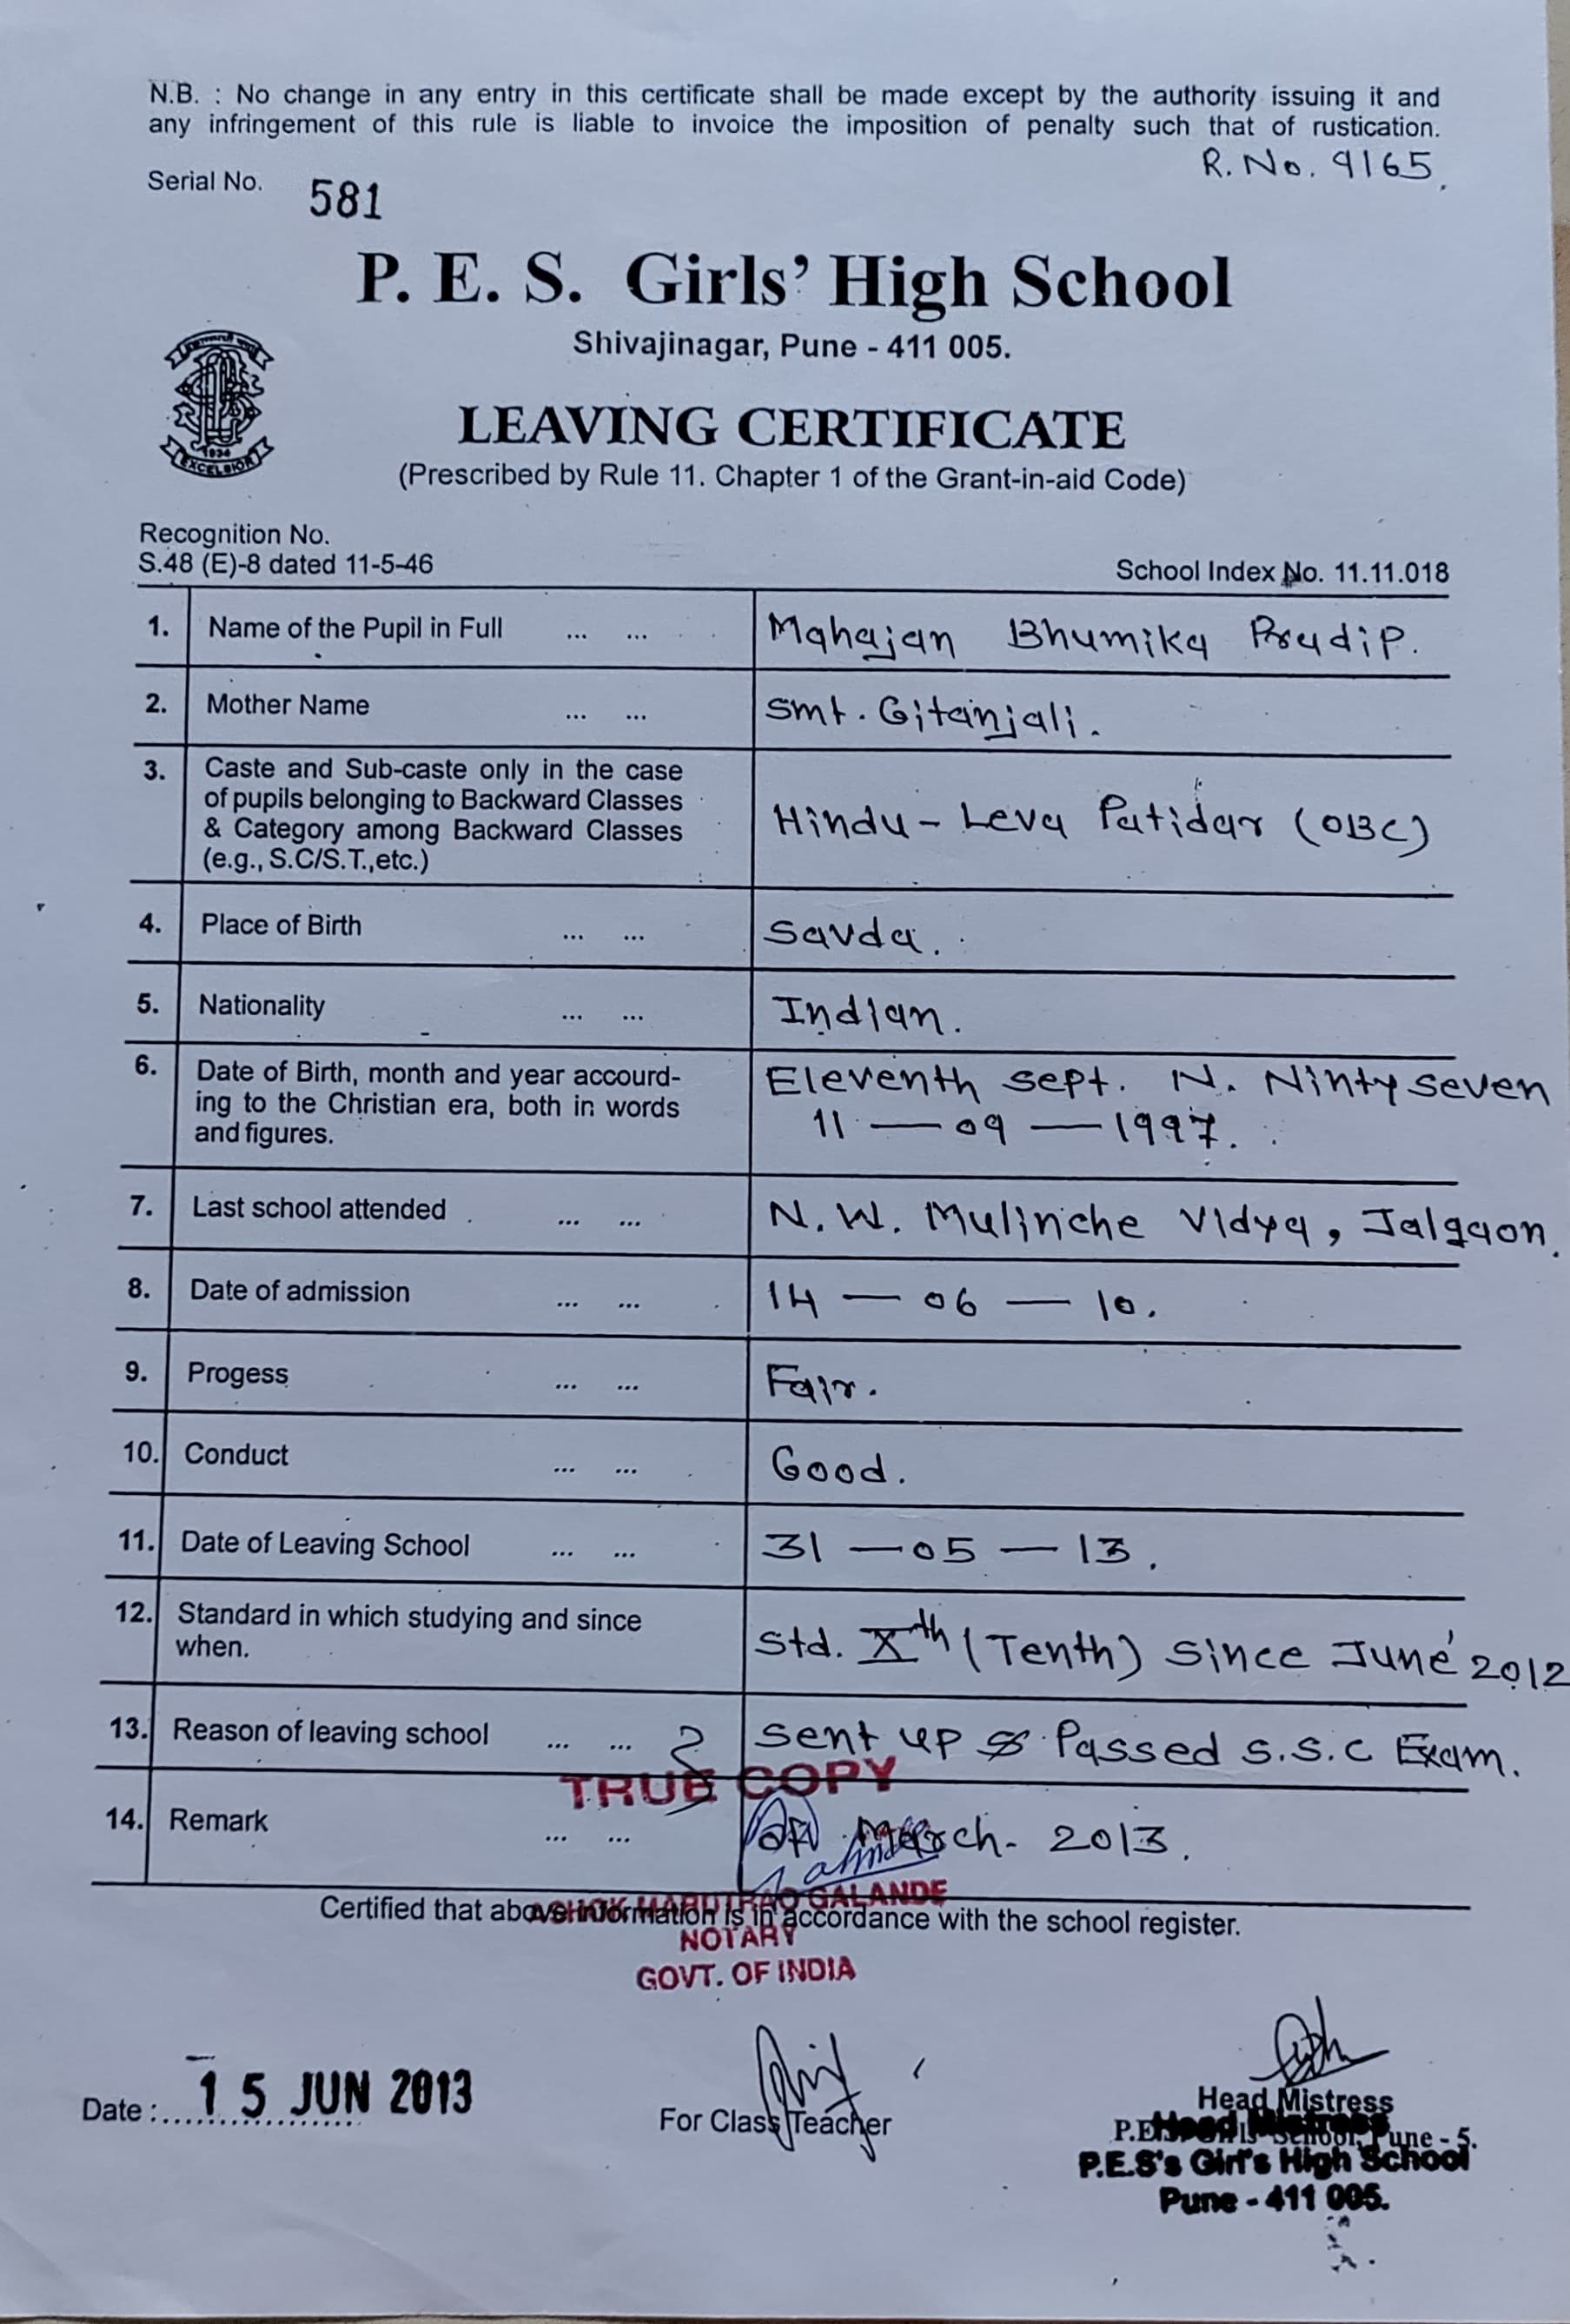 N.B. : No change in any entry in this certificate shall be made except by the authority issuing it and
any infringement of this rule is liable to invoice the imposition of penalty such that of rustication.
R. No. 9165.
Serial No. 581
P. E. S. Girls' High School
Shivajinagar, Pune - 411 005.
1934
EXCELSIOR
LEAVING CERTIFICATE
(Prescribed by Rule 11. Chapter 1 of the Grant-in-aid Code)
Recognition No.
S.48 (E)-8 dated 11-5-46
School Index No. 11.11.018
1. Name of the Pupil in Full ... ... Mahajan Bhumika Pradip.
2. Mother Name ... ... Smt. Gitanjali.
3. Caste and Sub-caste only in the case
of pupils belonging to Backward Classes
& Category among Backward Classes
(e.g., S.C/S.T.,etc.)
Hindu - Leva Patidar (OBC)
4. Place of Birth ... ... Savda.
5. Nationality ... ... Indian.
6. Date of Birth, month and year accourd-
ing to the Christian era, both in words
and figures.
Eleventh Sept. N. Ninty seven
11 — 09 — 1997.
7. Last school attended ... ... N. W. Mulinche Vidya, Jalgaon.
8. Date of admission ... ... 14 — 06 — 10.
9. Progess ... ... Fair.
10. Conduct ... ... Good.
11. Date of Leaving School ... ... 31 — 05 — 13.
12. Standard in which studying and since
when.
Std. Xth (Tenth) Since June 2012
13. Reason of leaving school ... ... Sent up & Passed S.S.C Exam.
TRUE COPY
14. Remark ... ... March - 2013.
Certified that above information is in accordance with the school register.
ASHOK MARUTRAO GALANDE
NOTARY
GOVT. OF INDIA
Date : 15 JUN 2013
For Class Teacher
Head Mistress
Pune - 5.
P.E.S's Girl's High School
Pune - 411 005.